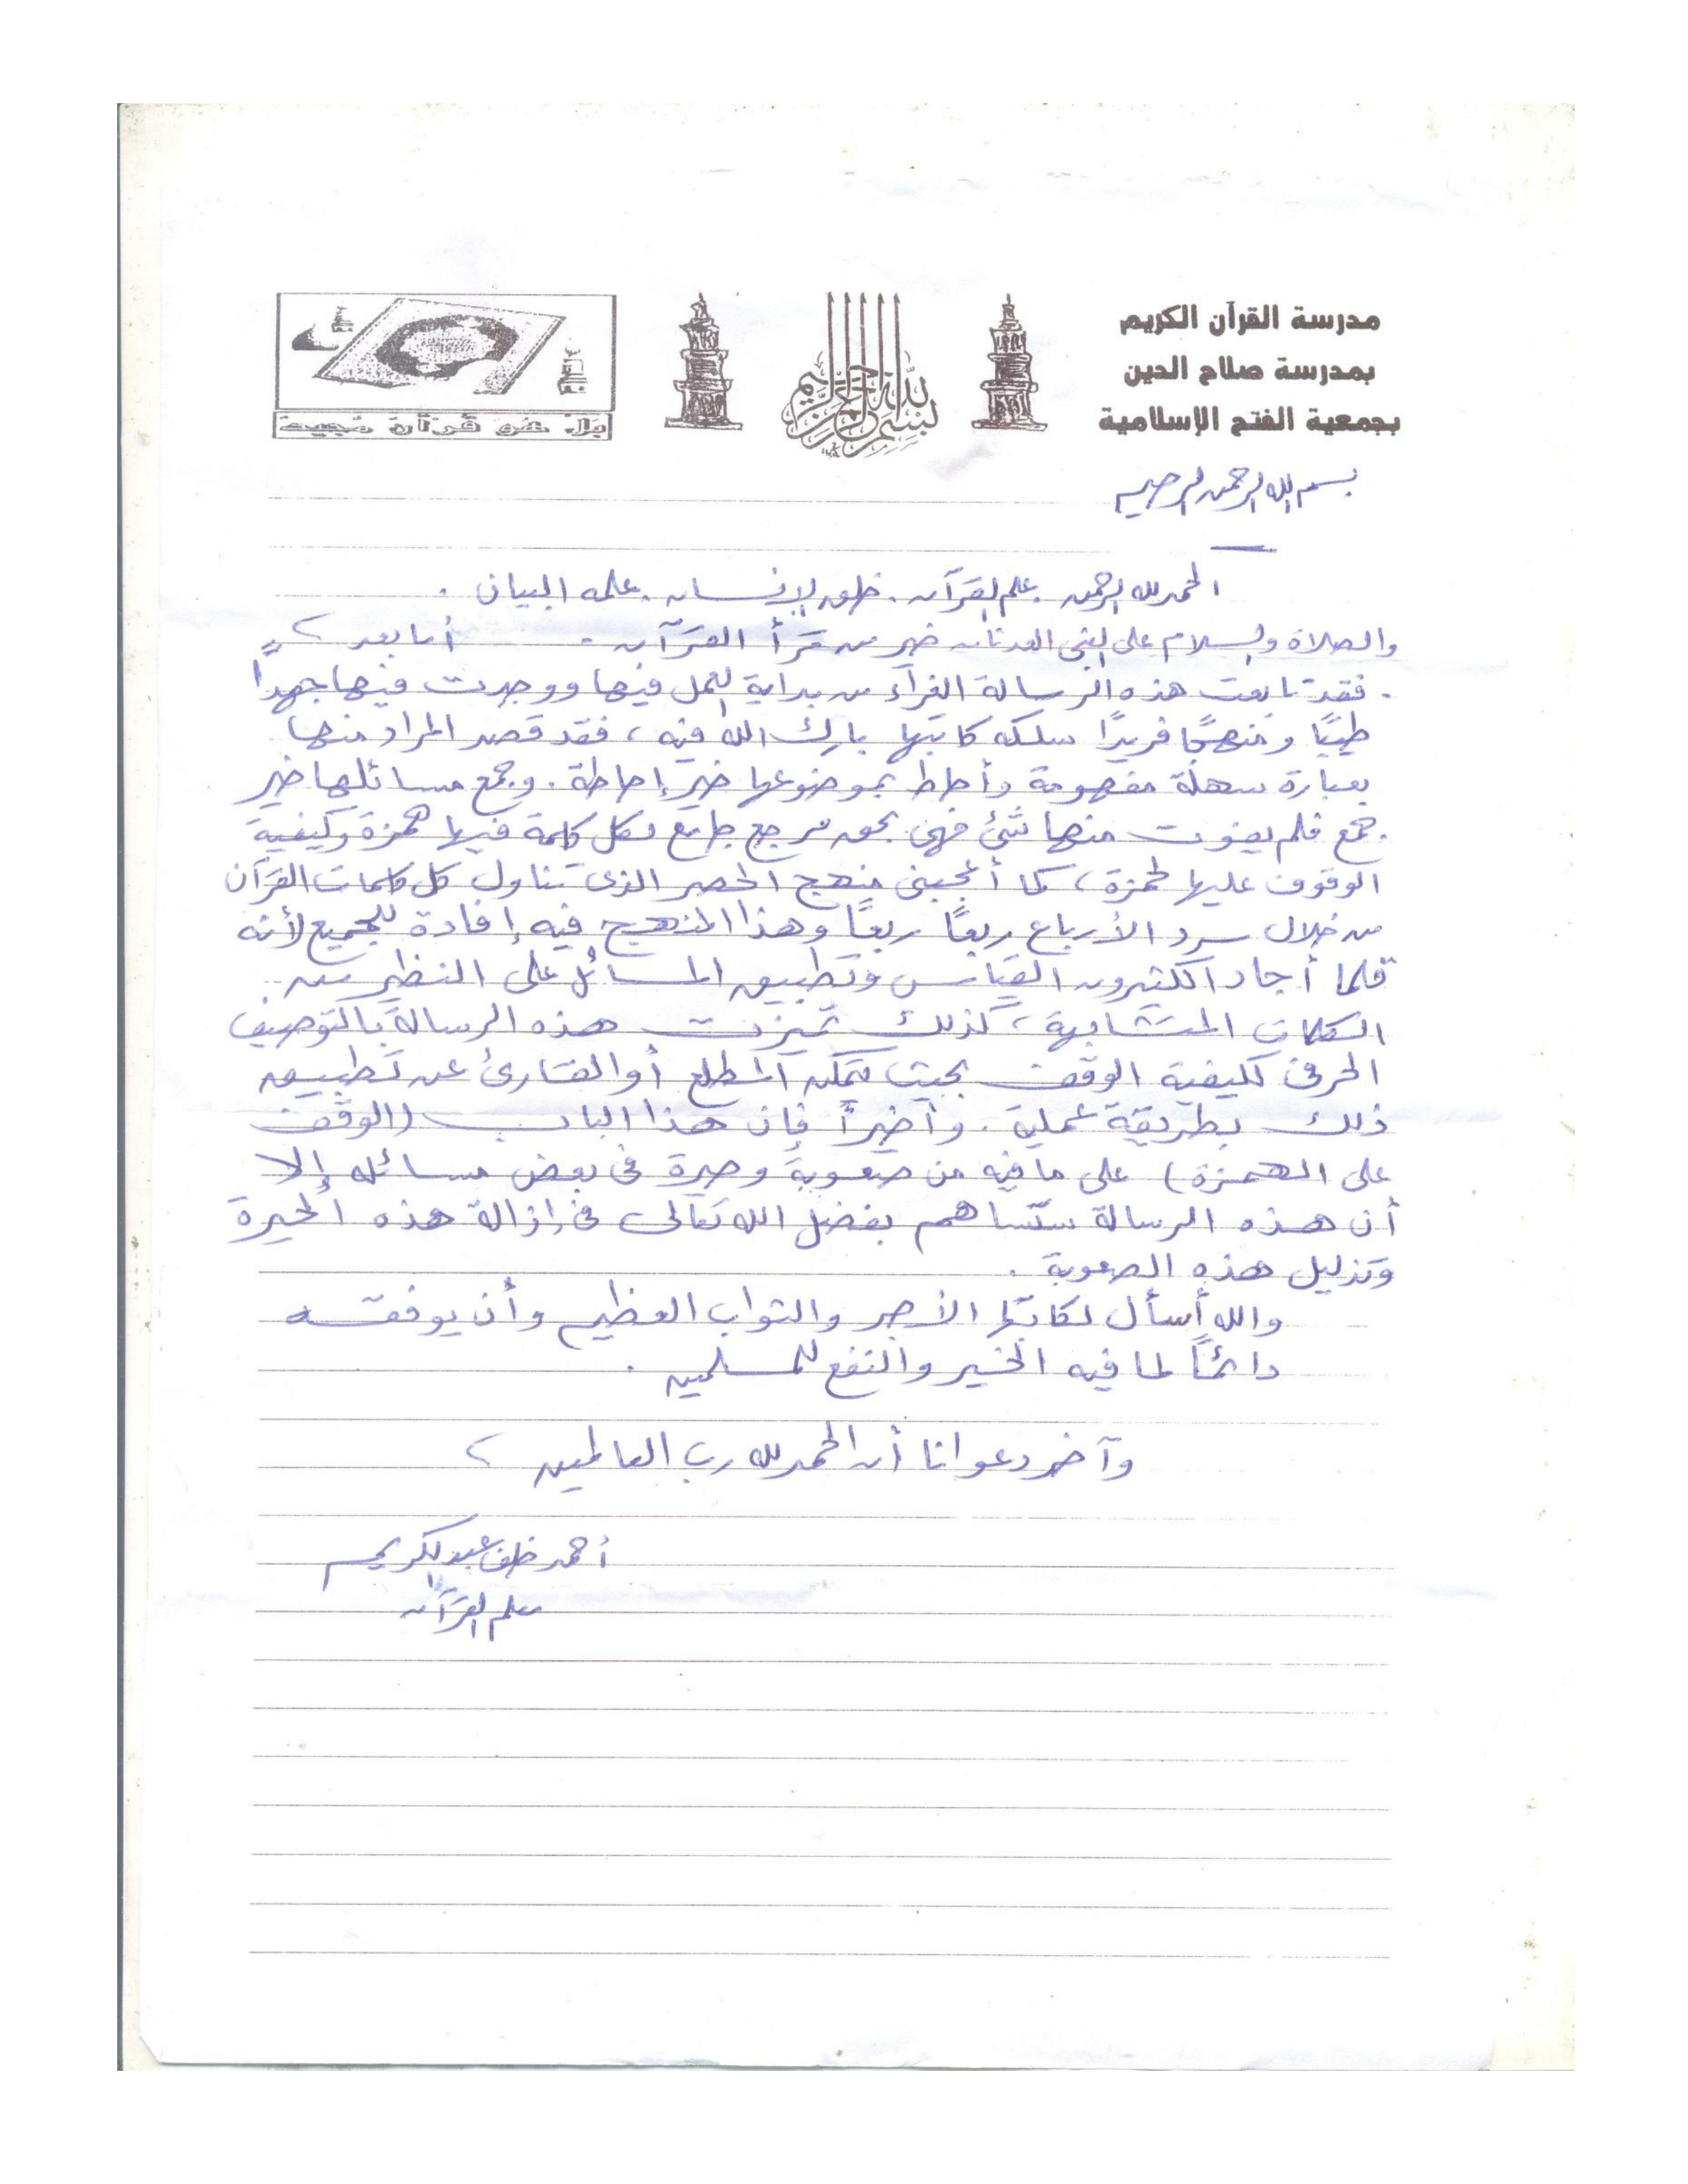 مدرسة القرآن الكريم
بمدرسة صلاح الدين
بجمعية الفتح الإسلامية
بسم الله الرحمن الرحيم
بل هو قرآن مجيد
بسم الله الرحمن الرحيم
الحمد لله الرحمن . علم القرآن . خلق الإنسان . علمه البيان .
والصلاة والسلام على النبى العدنان خير من قرأ القرآن . أما بعد
فقد تابعت هذه الرسالة الغراء من بداية العمل فيها ووجدت فيها جهدًا
طيبًا ومنهجًا فريدًا سلكه كاتبها بارك الله فيه ، فقد قصد المراد منها
بعبارة سهلة مفهومة وأحاط بموضوعها خير إحاطة . وجمع مسائلها خير
جمع فلم يفوت منها شئ فهى بحق مرجع جامع لكل كلمة فيها همزة وكيفية
الوقوف عليها لحمزة ، كما أعجبنى منهج الحصر الذى تناول كل كلمات القرآن
من خلال سرد الأرباع ربعًا ربعًا وهذا المنهج فيه إفادة للجميع لأنه
قلما أجاد الكثيرون القياس وتطبيق المسائل على النظير من
الكلمات المتشابهة ، كذلك تميزت هذه الرسالة بالتوصيف
الحرفى لكيفية الوقف بحيث يتمكن المطلع أو القارئ عن تطبيق
ذلك بطريقة عملية . وأخيرًا فإن هذا الباب (الوقف
على الهمزة) على ما فيه من صعوبة وحيرة فى بعض مسائله إلا
أن هذه الرسالة ستساهم بفضل الله تعالى فى إزالة هذه الحيرة
وتذليل هذه الصعوبة .
والله أسأل لكاتبها الأجر والثواب العظيم وأن يوفقه
دائمًا لما فيه الخير والنفع للمسلمين .
وآخر دعوانا أن الحمد لله رب العالمين
أحمد خلف عبد الكريم
معلم القرآن